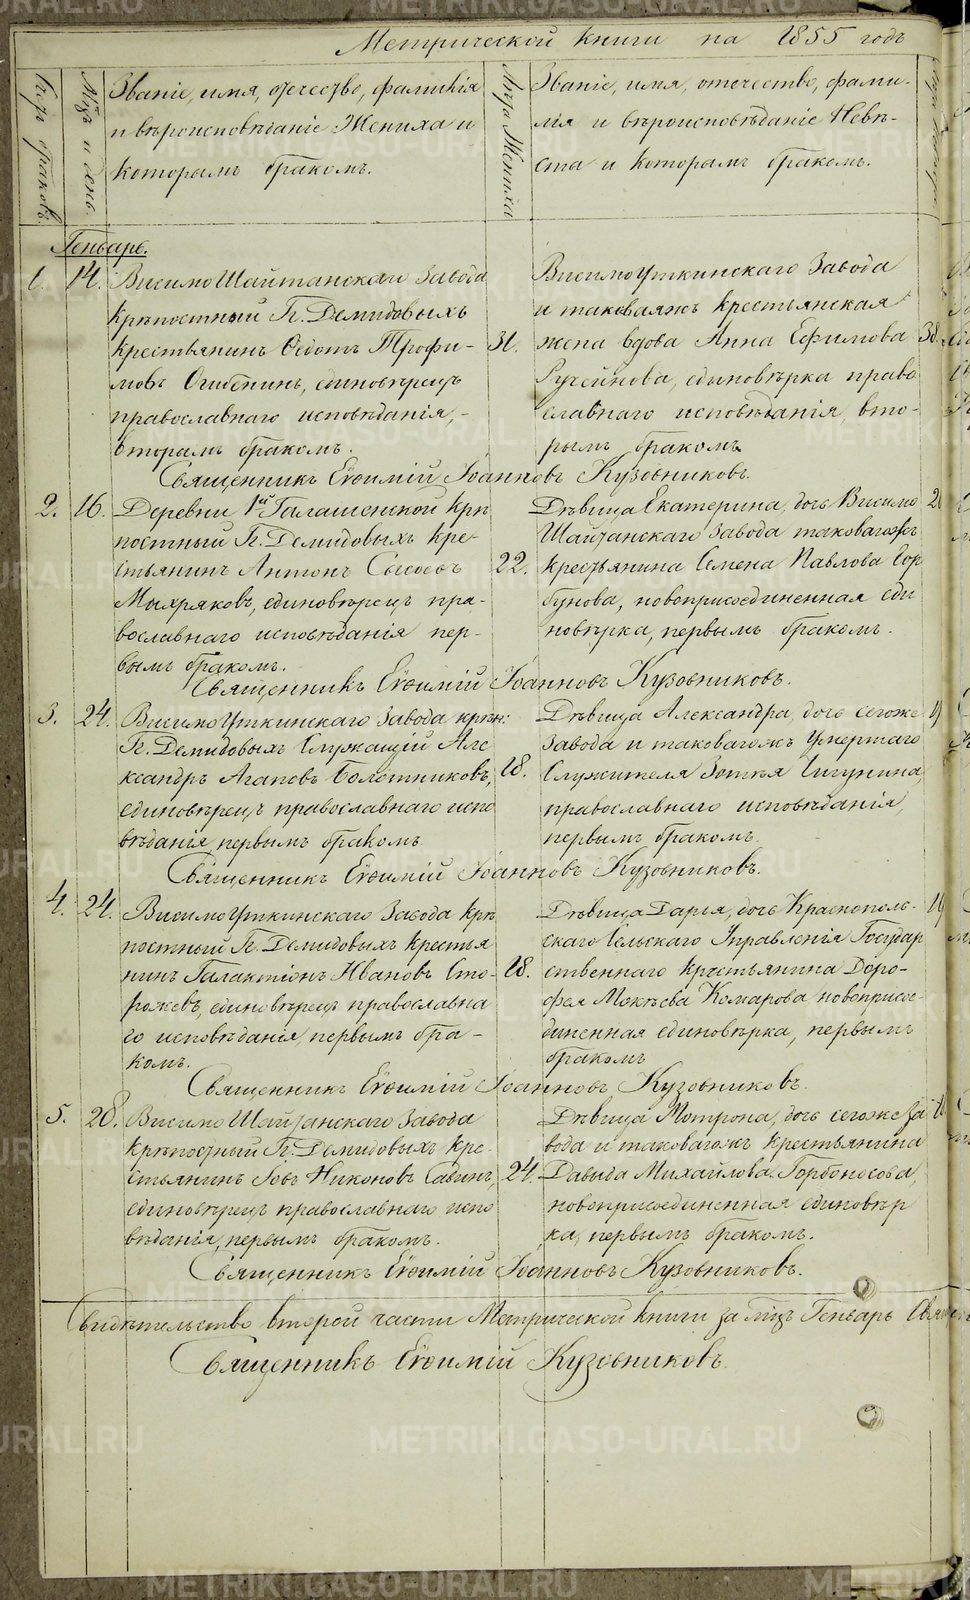 Метрической книги на 1855 годъ
Счетъ браковъ.
Мѣсяцъ и день.
Званіе, имя, отечество, фамилія
и вѣроисповѣданіе Жениха и
которымъ бракомъ.
Лѣта Жениха
Званіе, имя, отечество, фами-
лія и вѣроисповѣданіе Невѣ-
ста и которымъ бракомъ.
Генварь.
1. 14. Висимо Шайтанскаго завода
крѣпостный Гг. Демидовыхъ
крестьянинъ Ѳедотъ Трофи-
мовъ Огибенинъ, единовѣрецъ
православнаго исповѣданія,-
вторымъ бракомъ.
31.
Висимоуткинскаго завода
и таковаяжъ крестьянская
жена вдова Анна Ефимова 38.
Ручейнова, единовѣрка право
славнаго исповѣданія, вто-
рымъ бракомъ
Священникъ Евѳимій Іоанновъ Кузовниковъ.
2. 16. Деревни 1й Галашенской крѣ
постный Гг. Демидовыхъ кре-
стьянинъ Антонъ Сысоевъ
Махряковъ, единовѣрецъ пра-
вославнаго исповѣданія пер-
вымъ бракомъ.
22.
Дѣвица Екатерина, дочь Висимо
Шайтанскаго завода таковагожъ
крестьянина Семена Павлова Гор
бунова, новоприсоединенная еди
новѣрка, первымъ бракомъ.
Священникъ Евѳимій Іоанновъ Кузовниковъ.
3. 24. Висимоуткинскаго завода крѣп:
Гг. Демидовыхъ Служащій Але
ксандръ Агаповъ Болотниковъ,
единовѣрецъ православнаго испо
вѣданія, первымъ бракомъ
18.
Дѣвица Александра, дочь сегоже 19
завода и таковагожъ умершаго
Служителя Зотѣя Чигунина,
православнаго исповѣданія,
первымъ бракомъ.
Священникъ Евѳимій Іоанновъ Кузовниковъ.
4. 24. Висимоуткинскаго завода крѣ
постный Гг. Демидовыхъ крестья
нинъ Галактіонъ Ивановъ Сто-
рожевъ, единовѣрецъ православна
го исповѣданія, первымъ бра-
комъ.
18.
Дѣвица Дарья, дочь Краснополь- 19
скаго Сельскаго Управленія Государ
ственнаго крестьянина Доро-
фея Мокѣева Комарова новоприсое-
диненная единовѣрка, первымъ
бракомъ
Священникъ Евѳимій Іоанновъ Кузовниковъ.
5. 28. Висимо Шайтанскаго завода
крѣпостный Гг. Демидовыхъ кре-
стьянинъ Іовъ Никоновъ Савинъ,
единовѣрецъ православнаго испо
вѣданія, первымъ бракомъ.
24.
Дѣвица Мотрона, дочь сегоже за
вода и таковагожъ крестьянина
Давыда Михайлова Горбоносова,
новоприсоединенная единовѣр
ка, первымъ бракомъ.
Священникъ Евѳимій Іоанновъ Кузовниковъ.
Свидѣтельство второй части Метрической книги за мѣсяцъ Генварь
Священникъ Евѳимій Кузовниковъ.
METRIKI.GASO-URAL.RU